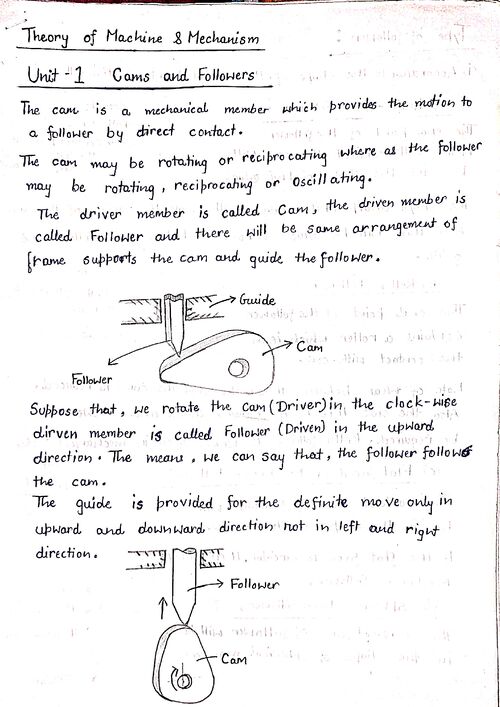 Theory of Machine & Mechanism
Unit-1 Cams and Followers
The cam is a mechanical member which provides the motion to
a follower by direct contact.
The cam may be rotating or reciprocating where as the follower
may be rotating, reciprocating or Oscillating.
The driver member is called Cam, the driven member is
called Follower and there will be same arrangement of
frame supports the cam and guide the follower.
Guide
Cam
Follower
Suppose that, we rotate the cam (Driver) in the clock-wise
dirven member is called Follower (Driven) in the upward
direction. The means, we can say that, the follower follows
the cam.
The guide is provided for the definite move only in
upward and downward direction not in left and right
direction.
Follower
Cam